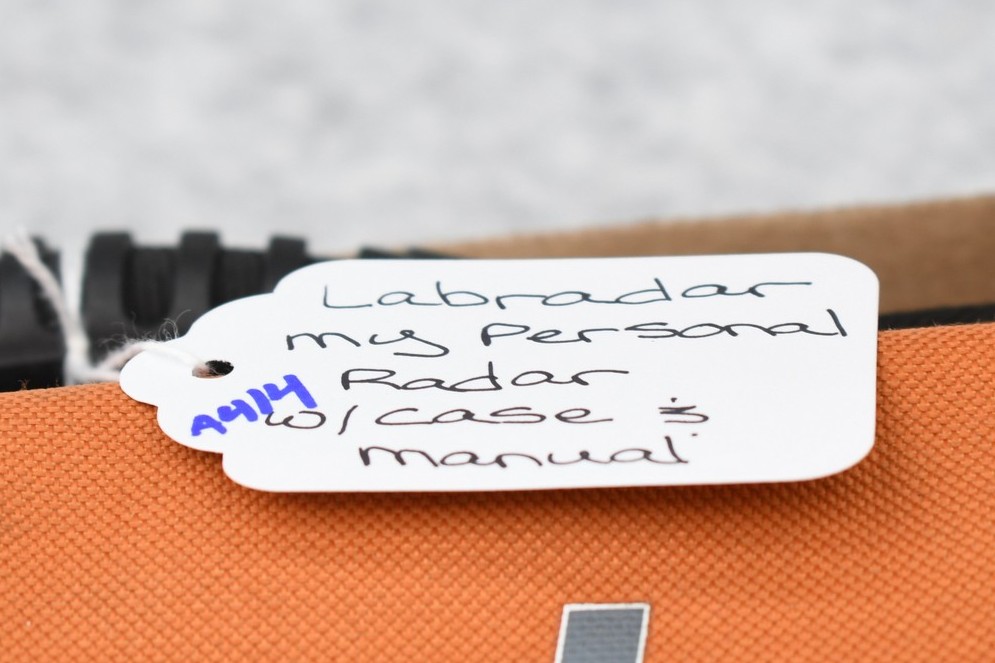 Labradar
my Personal
Radar
w/ case &
manual
A414